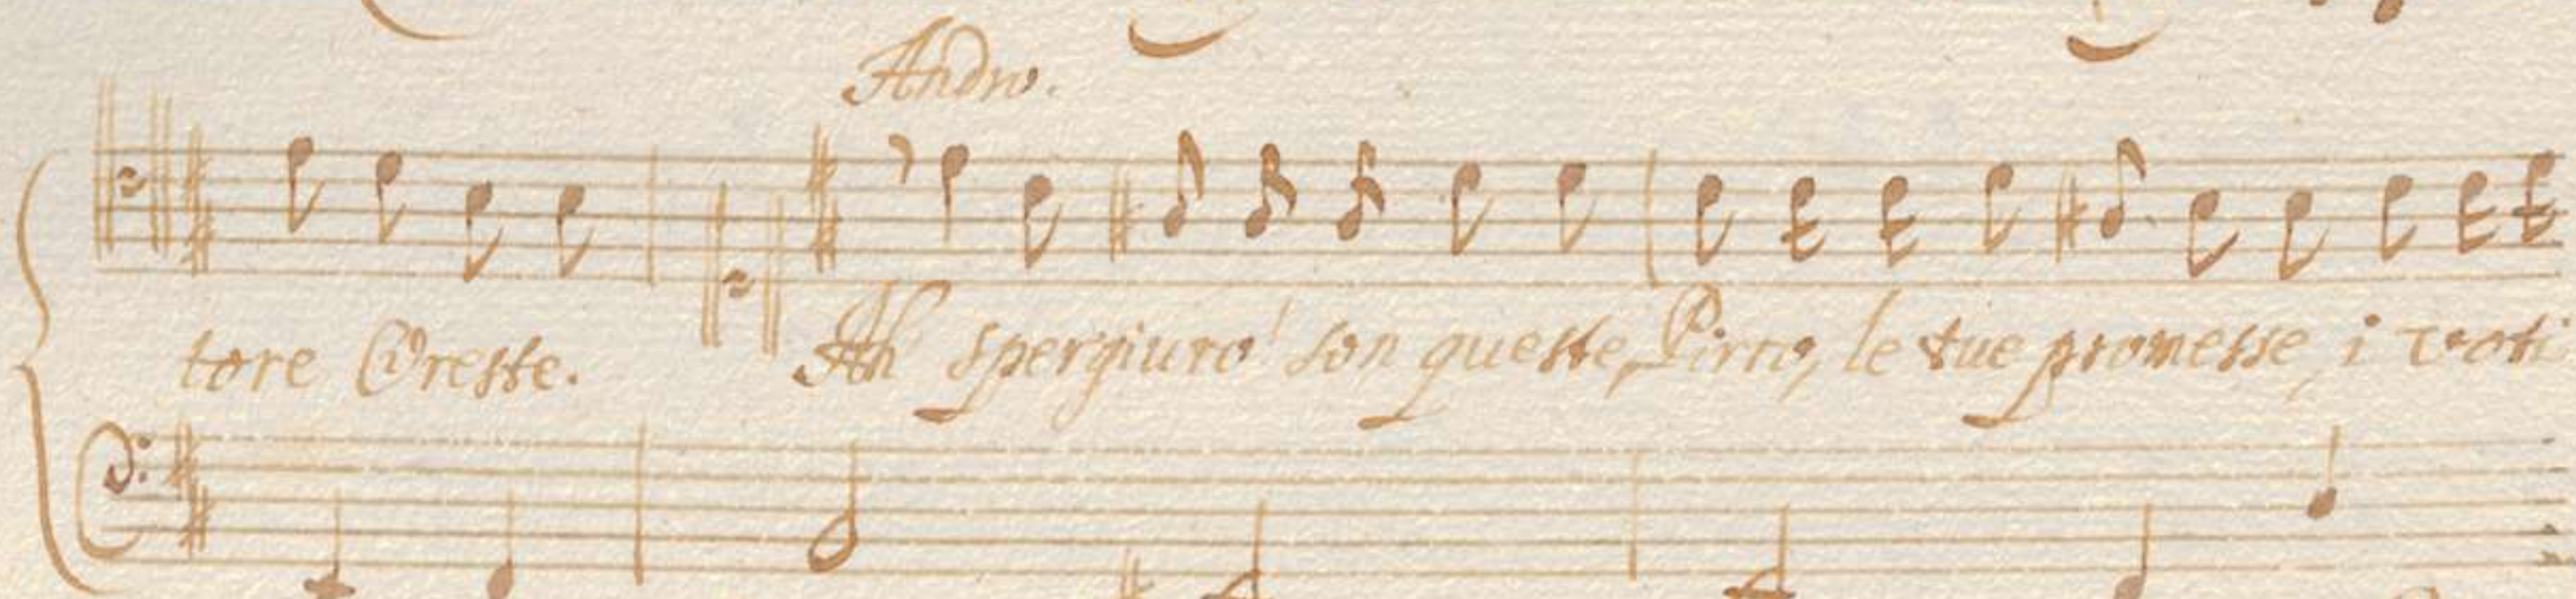 Andro.
tore Oreste. Ah spergiuro! son queste, Pirro, le tue promesse, i voti